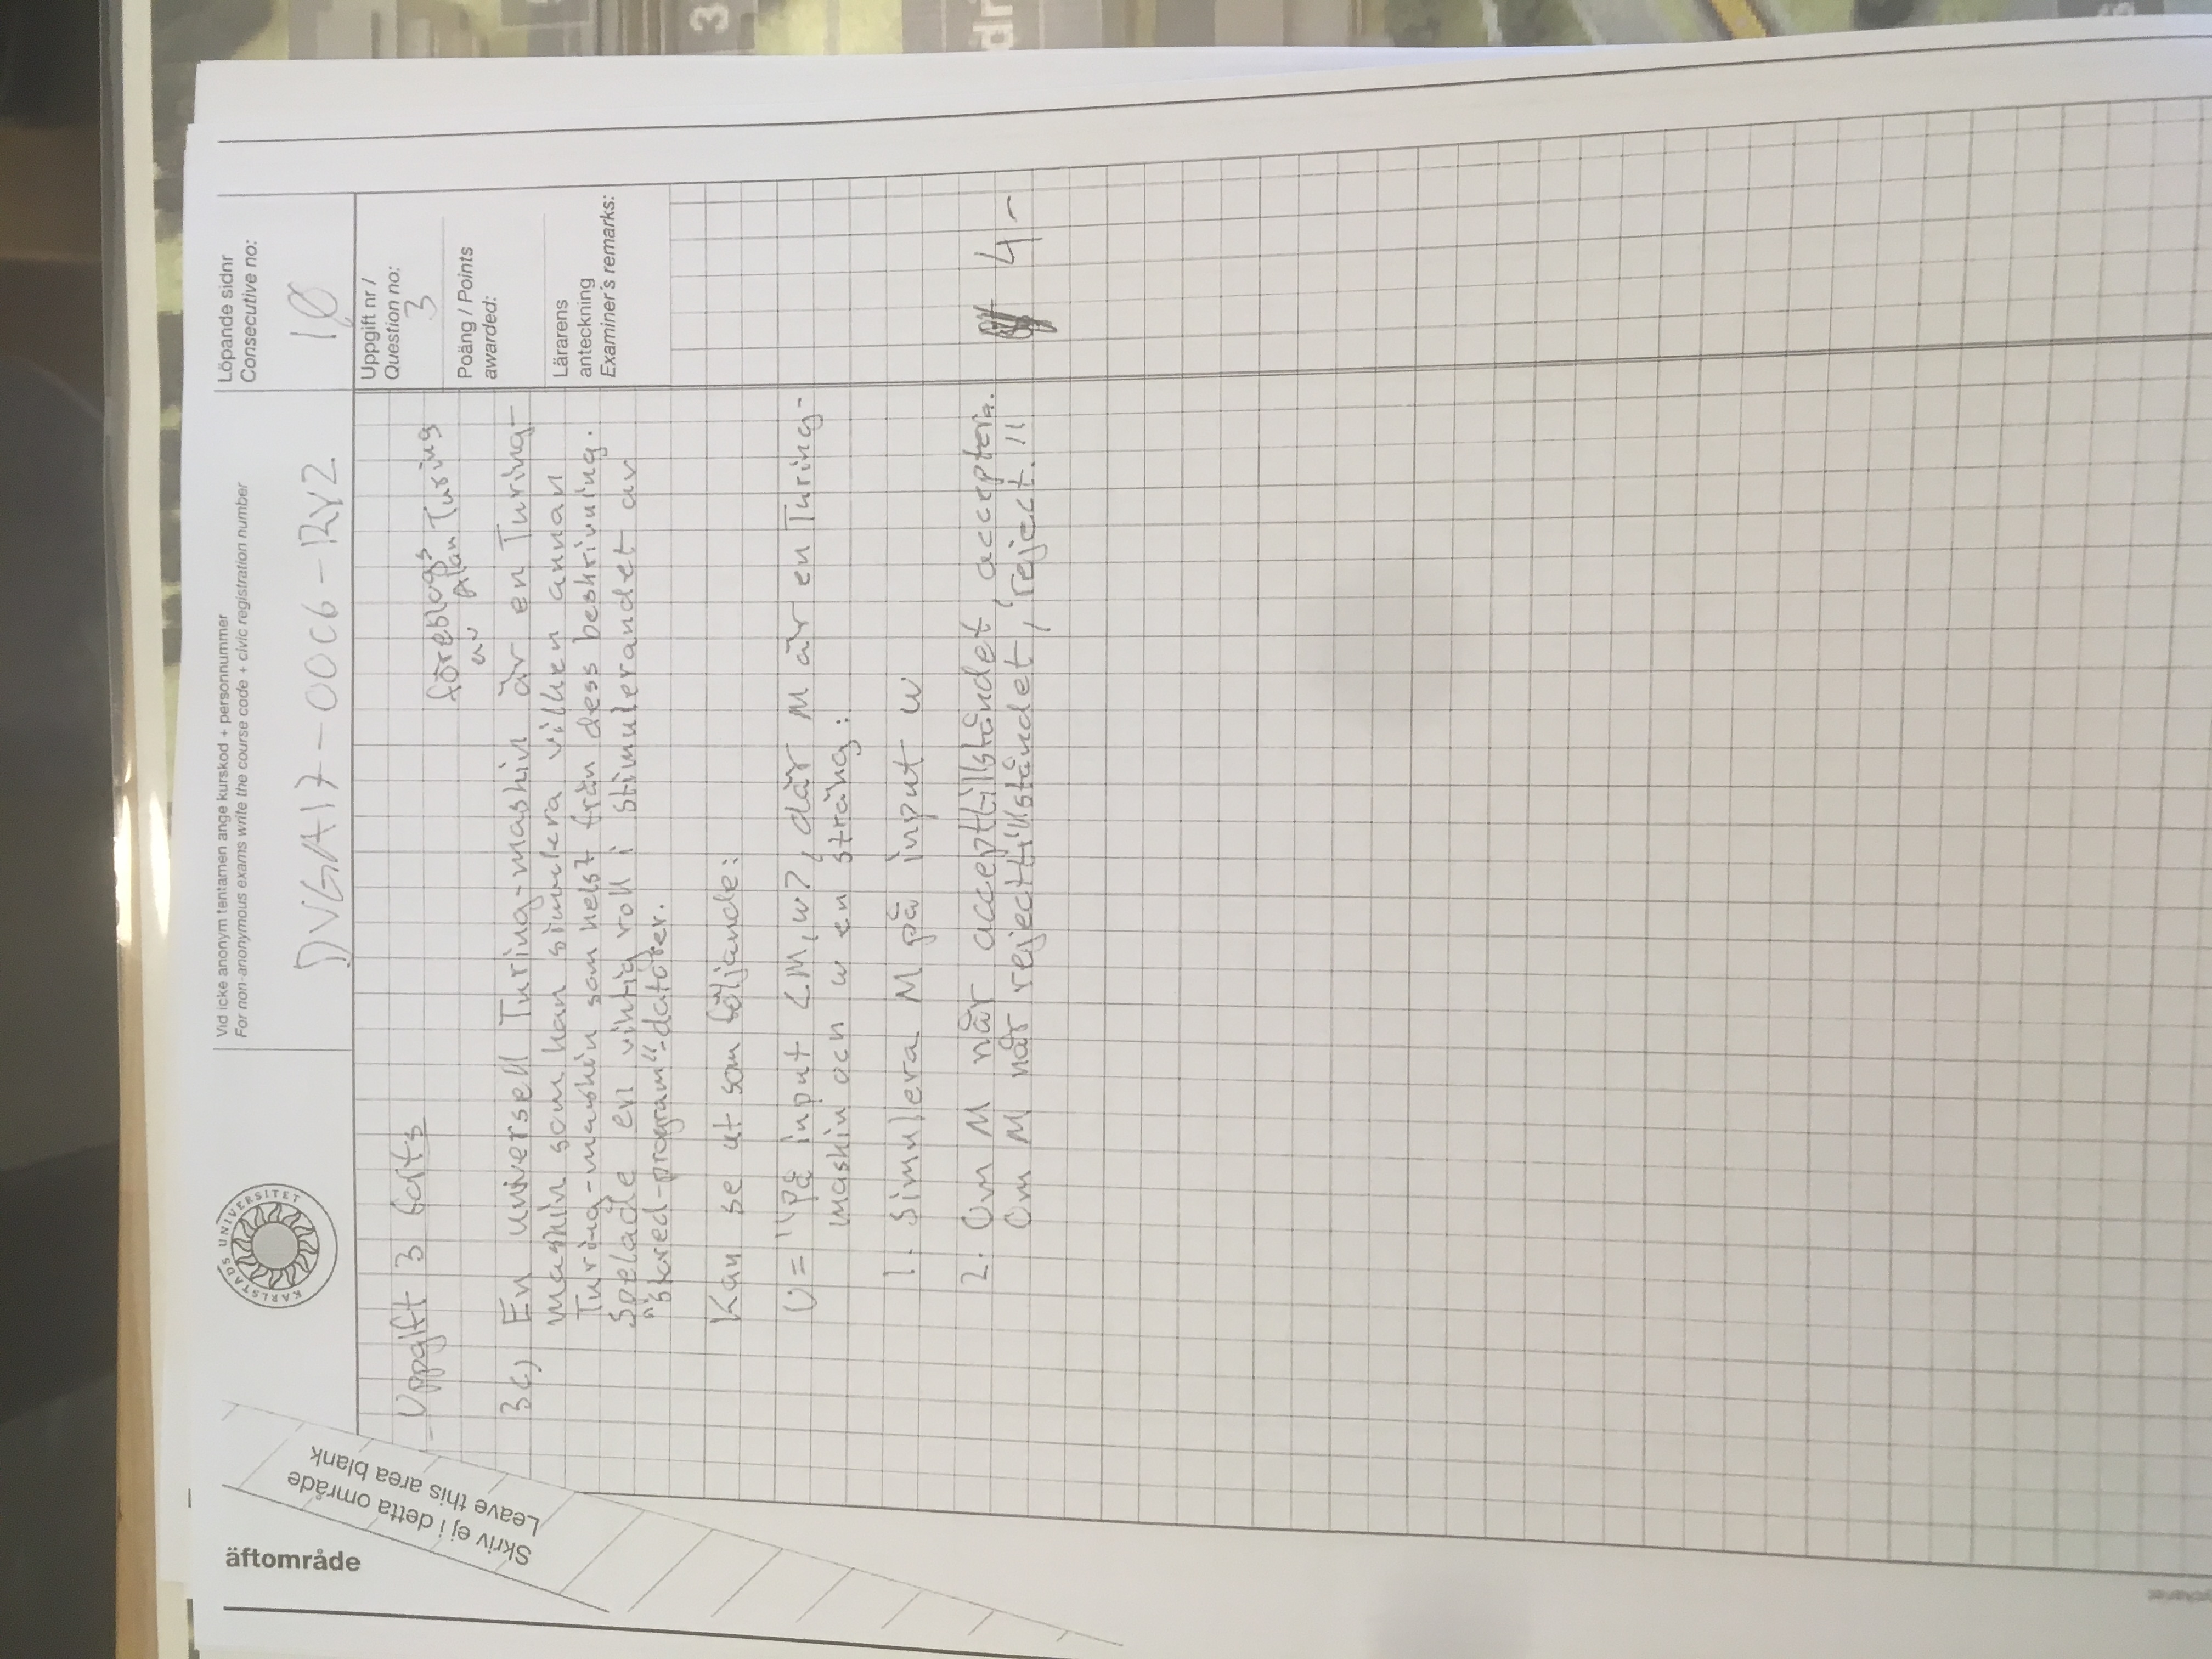 äftområde
Skriv ej i detta område
Leave this area blank
KARLSTADS UNIVERSITET
Vid icke anonym tentamen ange kurskod + personnummer
For non-anonymous exams write the course code + civic registration number
DVGA17-0006-RYZ
Löpande sidnr
Consecutive no:
10
Uppgift nr /
Question no:
3
Poäng / Points
awarded:
Lärarens
anteckning
Examiner's remarks:
Uppgift 3 forts
föreslogs
av Alan Turing
3c) En universell Turing-maskin är en Turing-
maskin som kan simulera vilken annan
Turing-maskin som helst från dess beskrivning.
Spelade en viktig roll i stimulerandet av
"stored-program"-datorer.
Kan se ut som följande:
U = "På input <M, w>, där M är en Turing-
maskin och w en sträng:
1. Simulera M på input w
2. Om M når accepttillståndet, acceptera.
Om M når rejecttillståndet, reject."
4-
3